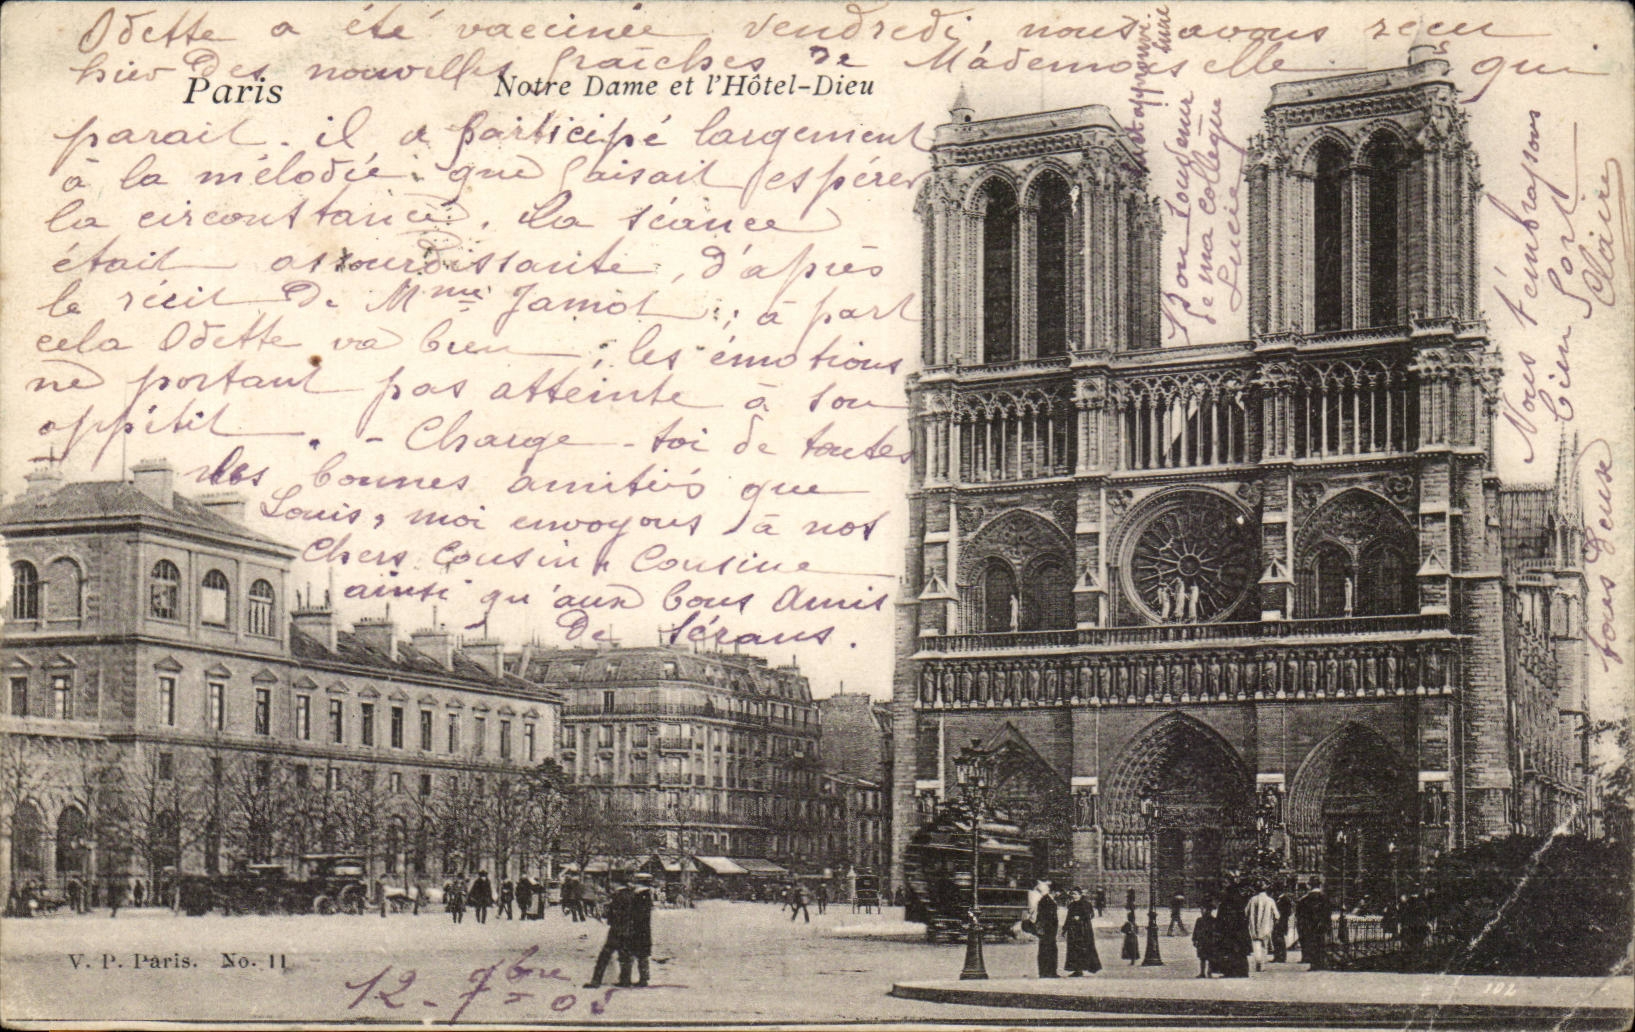 Odette a été vaccinée vendredi, nous avons reçu
hier des nouvelles fraîches de Mademoiselle qui
Paris
Notre Dame et l'Hôtel-Dieu
parait-il a participé largement
à la mélodie que faisait espérer
la circonstance. La séance
était assourdissante, d'après
le récit de Mme Jamot ; à part
cela Odette va bien ; les émotions
ne portant pas atteinte à son
appétit. - Charge-toi de toutes
les bonnes amitiés que
Louis, moi envoyons à nos
Chers Cousin, Cousine
ainsi qu'aux bons Amis
de Sérans.
Bon souvenir
de ma collègue
Lucie
Nous t'embrassons
bien fort
tous deux
Claire
V. P. Paris. No. 11
12 - 9bre = 05
102